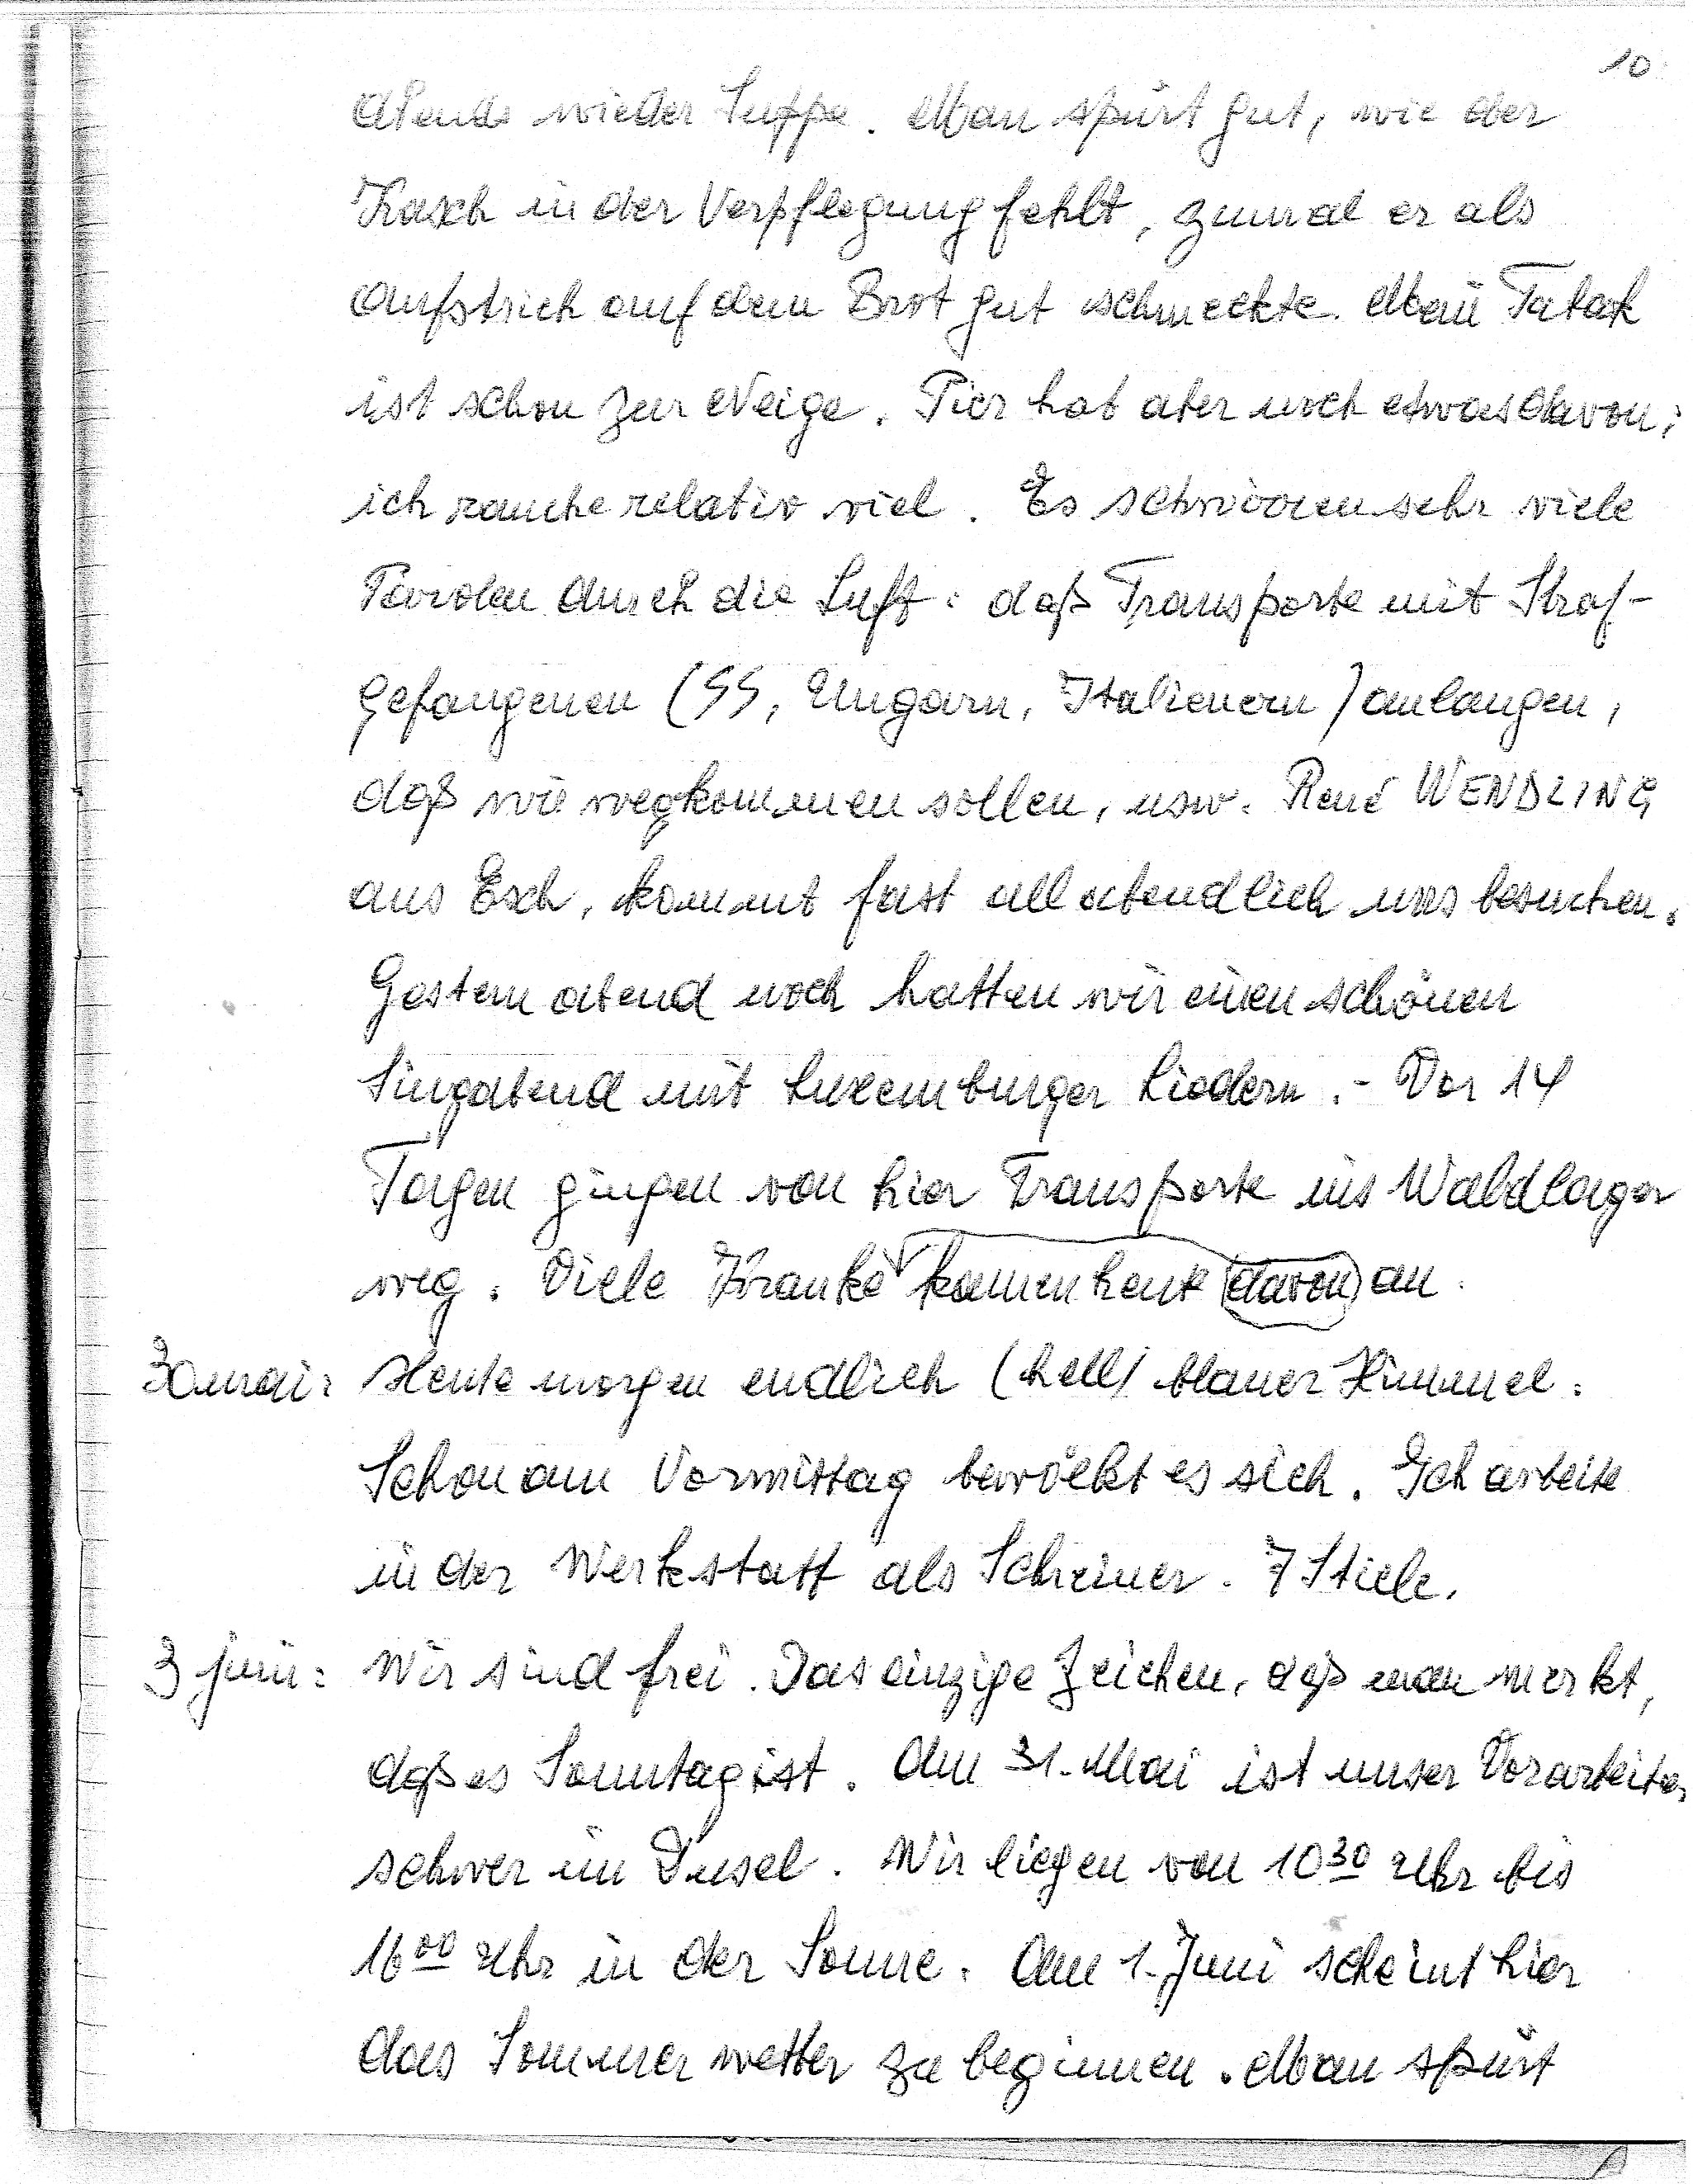 10
Abends wieder Suppe. Man spürt gut, wie der
Kasch in der Verpflegung fehlt, zumal er als
Aufstrich auf dem Brot gut schmeckte. Mein Tabak
ist schon zur Neige. Pier hat aber noch etwas davon;
ich rauche relativ viel. Es schwirren sehr viele
Parolen durch die Luft: daß Transporte mit Straf-
gefangenen (SS, Ungarn, Italienern) anlangen,
daß wir wegkommen sollen, usw. René WENDLING
aus Esch, kommt fast allabendlich uns besuchen.
Gestern abend noch hatten wir einen schönen
Singabend mit Luxemburger Liedern. - Vor 14
Tagen gingen von hier Transporte ins Waldlager
weg. Viele Kranke kamen heute davon an.
30 mai: Heute morgen endlich (hell) blauer Himmel.
Schon am Vormittag bewölkt es sich. Ich arbeite
in der Werkstatt als Schreiner. 7 Stiele.
3 juni: Wir sind frei. Das einzige Zeichen, daß man merkt,
daß es Sonntag ist. Am 31. Mai ist unser Vorarbeiter
schwer im Dusel. Wir liegen von 10³⁰ Uhr bis
16⁰⁰ Uhr in der Sonne. Am 1. Juni scheint hier
das Sommerwetter zu beginnen. Man spürt